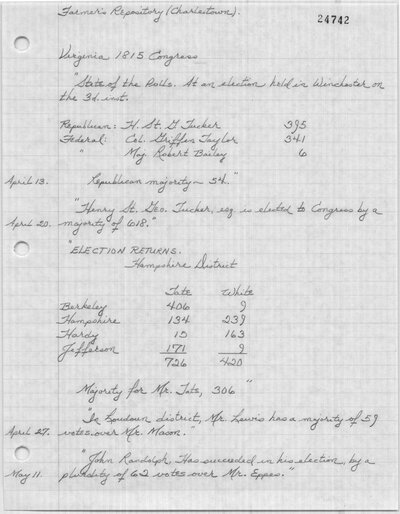 Farmer's Repository (Charlestown).
24742
Virginia 1815 Congress
"State of the Polls. At an election held in Winchester on
the 3d. inst.
Republican: H. St. G. Tucker 395
Federal: Col. Griffin Taylor 341
" Maj. Robert Bailey 6
April 13. Republican majority - 54."
"Henry St. Geo. Tucker, esq is elected to Congress by a
April 20. majority of 618."
"ELECTION RETURNS.
Hampshire District
Tate White
Berkeley 406 9
Hampshire 134 239
Hardy 15 163
Jefferson 171 9
726 420
Majority for Mr. Tate, 306 "
"In Loudoun district, Mr. Lewis has a majority of 59
April 27. votes over Mr. Mason."
"John Randolph, Has succeeded in his election, by a
May 11. plurality of 62 votes over Mr. Eppes."